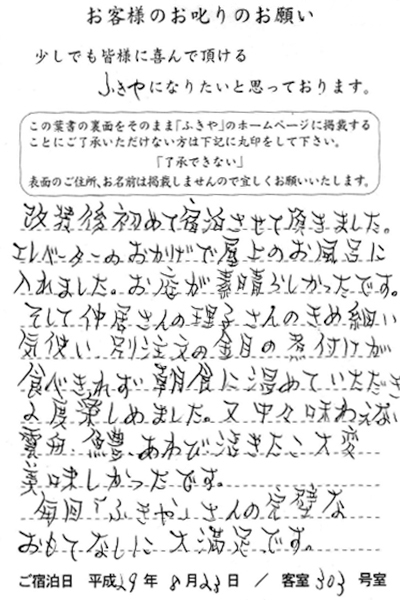 お客様のお叱りのお願い
少しでも皆様に喜んで頂ける
ふきやになりたいと思っております。
この葉書の裏面をそのまま「ふきや」のホームページに掲載する
ことにご了承いただけない方は下記に丸印をして下さい。
「了承できない」
表面のご住所、お名前は掲載しませんので宜しくお願いいたします。
改装後初めて宿泊させて頂きました。
エレベーターのおかげで屋上のお風呂に
入れました。お庭が素晴らしかったです。
そして仲居さんの理子さんのきめ細い
気使い 別注文の金目の煮付けが
食べきれず朝食に温めていただき
2度楽しめました。又中々味わえない
雲丹、鱧、あわび 炊きたこ 大変
美味しかったです。
毎回「ふきや」さんの完璧な
おもてなしに大満足です。
ご宿泊日 平成29年 8月23日 / 客室 303 号室